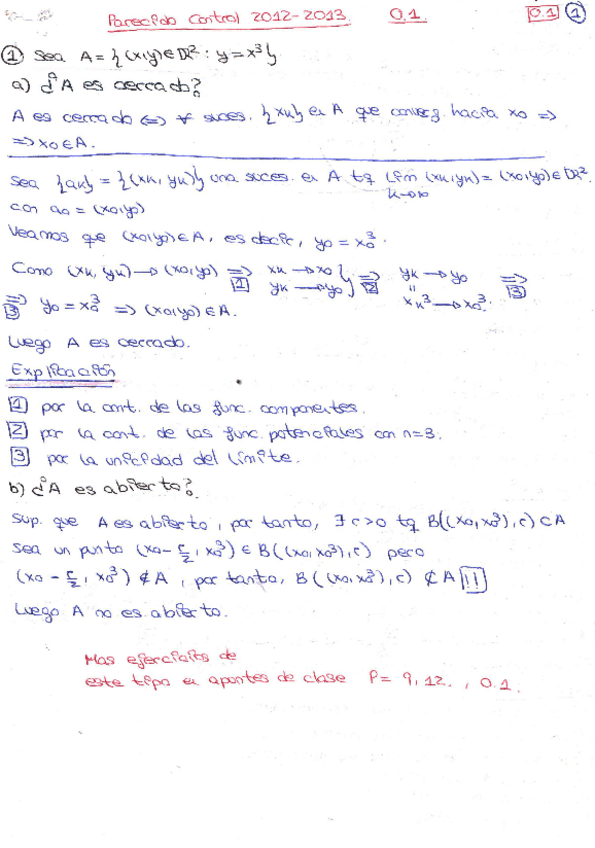 Parecido Control 2012-2013. O.1. O.1 1
1 Sea A = {(x,y)∈ℝ² : y = x³}
a) ¿A es cerrado?
A es cerrado ⇔ ∀ suces. {xk} en A que converg. hacia x0 ⇒
⇒ x0∈A.
Sea {ak} = {(xk, yk)} una suces. en A tq lím (xk,yk) = (x0,y0)∈ℝ².
k→∞
con a0 = (x0,y0)
Veamos que (x0,y0)∈A, es decir, y0 = x0³.
Como (xk, yk) → (x0,y0) ⇒ xk → x0 } ⇒ yk → y0 ⇒
1 yk → y0 2 xk³ → x0³. 3
⇒ y0 = x0³ ⇒ (x0,y0)∈A.
3
Luego A es cerrado.
Explicación
1 por la cont. de las func. componentes.
2 por la cont. de las func. potenciales con n=3.
3 por la unicidad del límite.
b) ¿A es abierto?
Sup. que A es abierto, por tanto, ∃ r>0 tq B((x0,x0³),r) ⊂ A
Sea un punto (x0 - r/2, x0³) ∈ B((x0,x0³),r) pero
(x0 - r/2, x0³) ∉ A, por tanto, B((x0,x0³),r) ⊄ A !!
Luego A no es abierto.
Mas ejercicios de
este tipo en apuntes de clase P= 9, 12. , O.1.